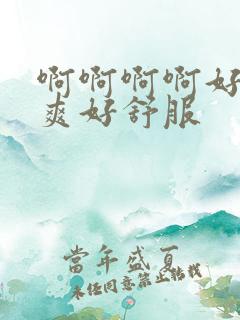 啊啊啊啊好
爽好舒服
當年盛夏
未经同意禁止转载